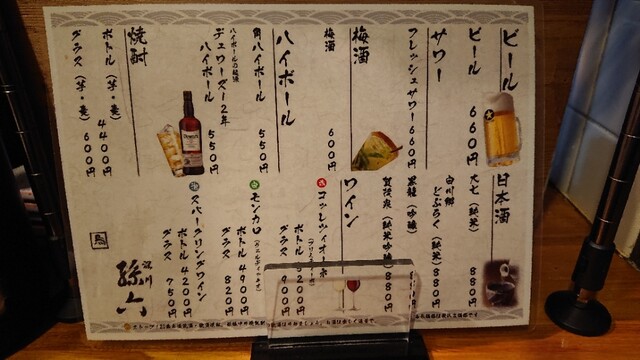 ビール
ビール 660円
サワー
フレッシュサワー 660円
梅酒
梅酒 600円
ハイボール
角ハイボール 550円
ハイボールの秘湯
デュワーズ12年
ハイボール 550円
焼酎
ボトル(芋・麦) 4400円
グラス(芋・麦) 600円
日本酒
大七(純米) 880円
白川郷
どぶろく(純米) 880円
黒龍(吟醸)
賀茂泉(純米吟醸) 880円
ワイン
ボトル
グラス 900円
モンカロ
ボトル 4900円
グラス 820円
スパークリングワイン
ボトル 4200円
グラス 750円
深川
孫六